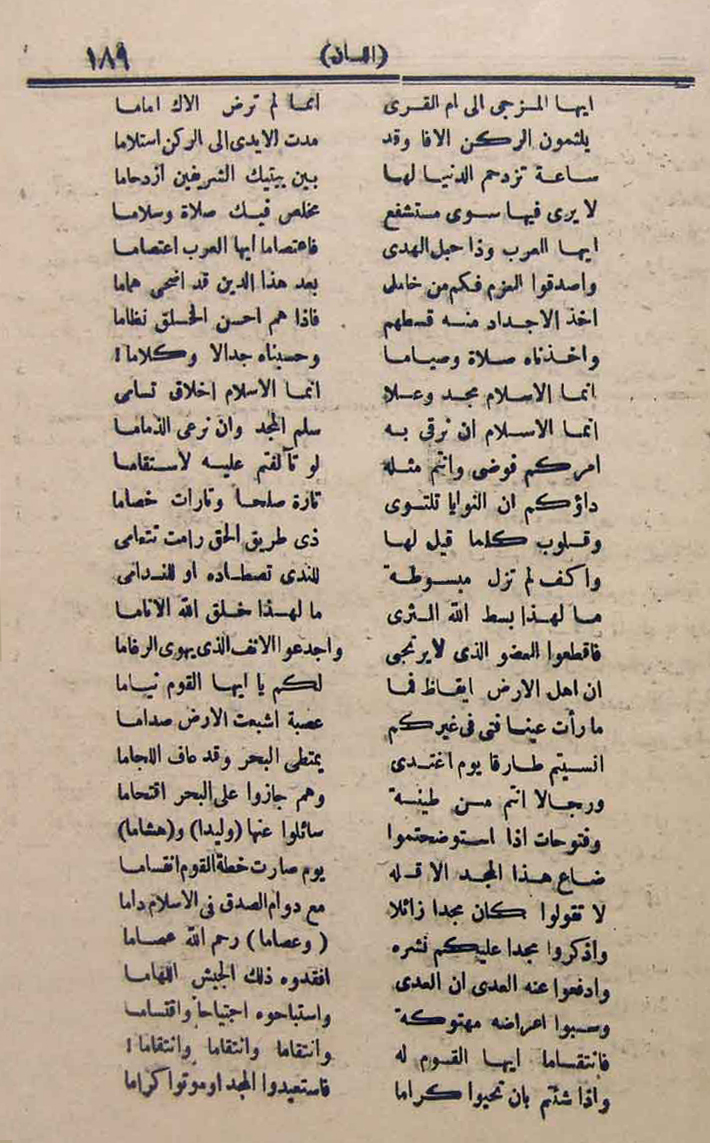 (اللسان) ١٨٩
ايها المزجى الى ام القرى انما لم ترض الاك اماما
يلثمون الركن الافا وقد مدت الايدى الى الركن استلاما
ساعة تزدحم الدنيا لها بين بيتيك الشريفين ازدحاما
لا يرى فيها سوى مستشفع مخلص فيك صلاة وسلاما
ايها العرب وذا حبل الهدى فاعتصاما ايها العرب اعتصاما
واصدقوا العزم فكم من خامل بعد هذا الدين قد اضحى هماما
اخذ الاجداد منه قسطهم فاذا هم احسن الخلق نظاما
واخذناه صلاة وصياما وحسبناه جدالا وكلاما!
انما الاسلام مجد وعلا انما الاسلام اخلاق تسامى
انما الاسلام ان نرقى به سلم المجد وان نرعى الذماما
امركم فوضى وانتم مثله لو تآلفتم عليه لاستقاما
داؤكم ان النوايا تلتوى تارة صلحا وتارات خصاما
وقلوب كلما قيل لها ذى طريق الحق رامت تتعامى
واكف لم تزل مبسوطة للندى تصطاده او للندامى
ما لهذا بسط الله الثرى ما لهذا خلق الله الاناما
فاقطعوا العضو الذى لا يرتجى واجدعوا الانف الذى يهوى الرغاما
ان اهل الارض ايقاظ فما لكم يا ايها القوم نياما
ما رأت عينا فتى فى غيركم عصبة اشبعت الارض صداما
انسيتم طارقا يوم اغتدى يمتطى البحر وقد عاف اللجاما
ورجالا انتم من طينة وهم جازوا على البحر اقتحاما
وفتوحات اذا استوضحتموا سائلوا عنها (وليدا) و(هشاما)
ضاع هذا المجد الا قله يوم صارت خطة القوم انقساما
لا تقولوا كان مجدا زائلا مع دوام الصدق فى الاسلام داما
واذكروا مجدا عليكم نشره (وعصاما) رحم الله عصاما
وادفعوا عنه العدى ان العدى افقدوه ذلك الجيش اللهاما
وسبوا اعراضه مهتوكة واستباحوه اجتياحا واقتساما
فانتقاما ايها القوم له وانتقاما وانتقاما وانتقاما!
واذا شئتم بان تحيوا كراما فاستعيدوا المجد او موتوا كراما